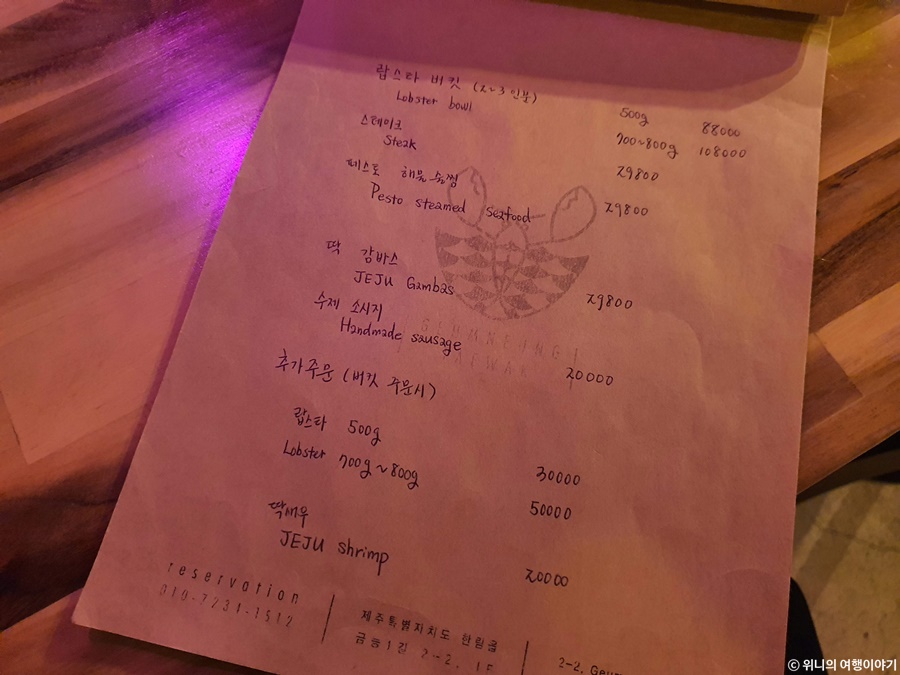 랍스타 버킷 (2~3인분)
Lobster bowl 500g 88000
700~800g 108000
스테이크
Steak 29800
페스토 해물술찜
Pesto steamed seafood 29800
딱 감바스
JEJU Gambas 29800
수제 소시지
Handmade sausage 20000
추가주문 (버킷 주문시)
랍스타 500g 30000
Lobster 700g~800g 50000
딱새우
JEJU shrimp 20000
reservation
제주특별자치도 한림읍
금능1길 2-2, 1F
2-2,
© 위니의 여행이야기